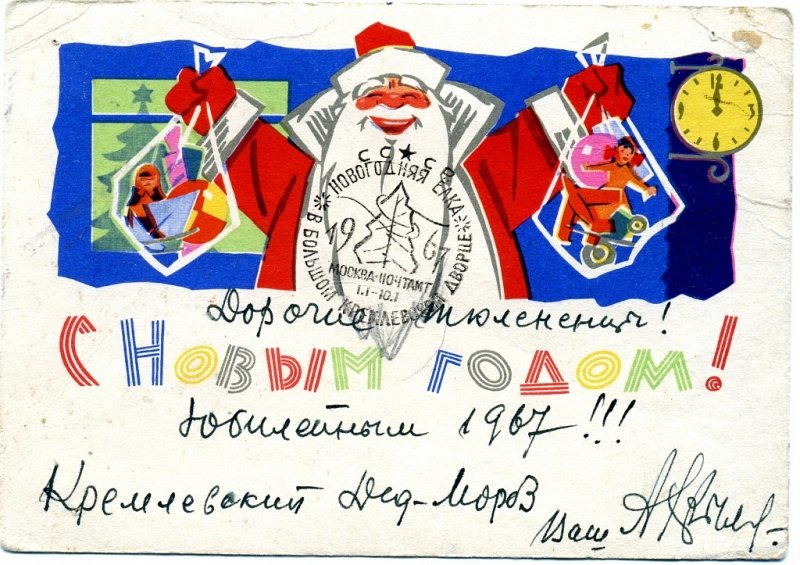 СС★СР
НОВОГОДНЯЯ ЕЛКА
В БОЛЬШОМ КРЕМЛЕВСКОМ ДВОРЦЕ
1967
МОСКВА-ПОЧТАМТ
1.I-10.I
Дорогие тюлененцы!
С НОВЫМ ГОДОМ!
Юбилейным 1967!!!
Кремлевский Дед-Мороз
Ваш